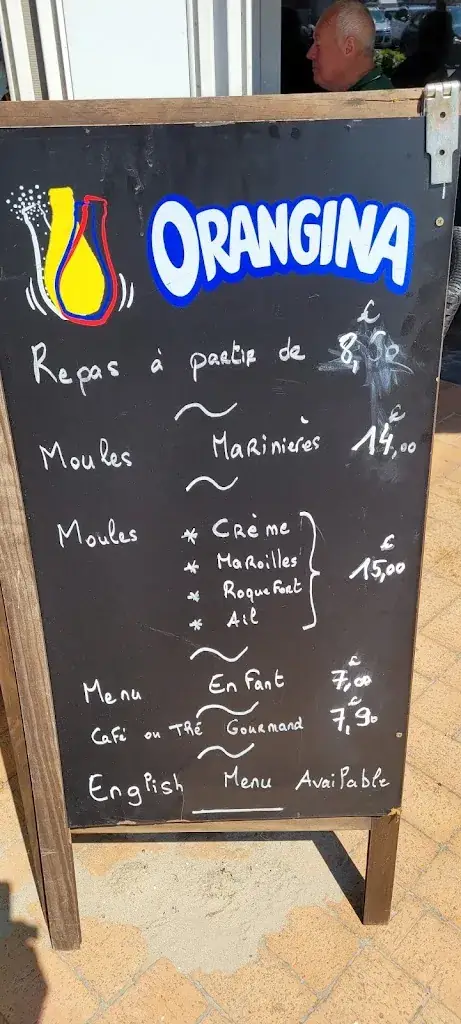 ORANGINA
Repas à partir de 8,50 €
Moules Marinierès 14,00 €
Moules * Crème
* Maroilles
* Roquefort
* Ail
15,00 €
Menu Enfant 7,00 €
Café ou Thé Gourmand 7,90 €
English Menu Available